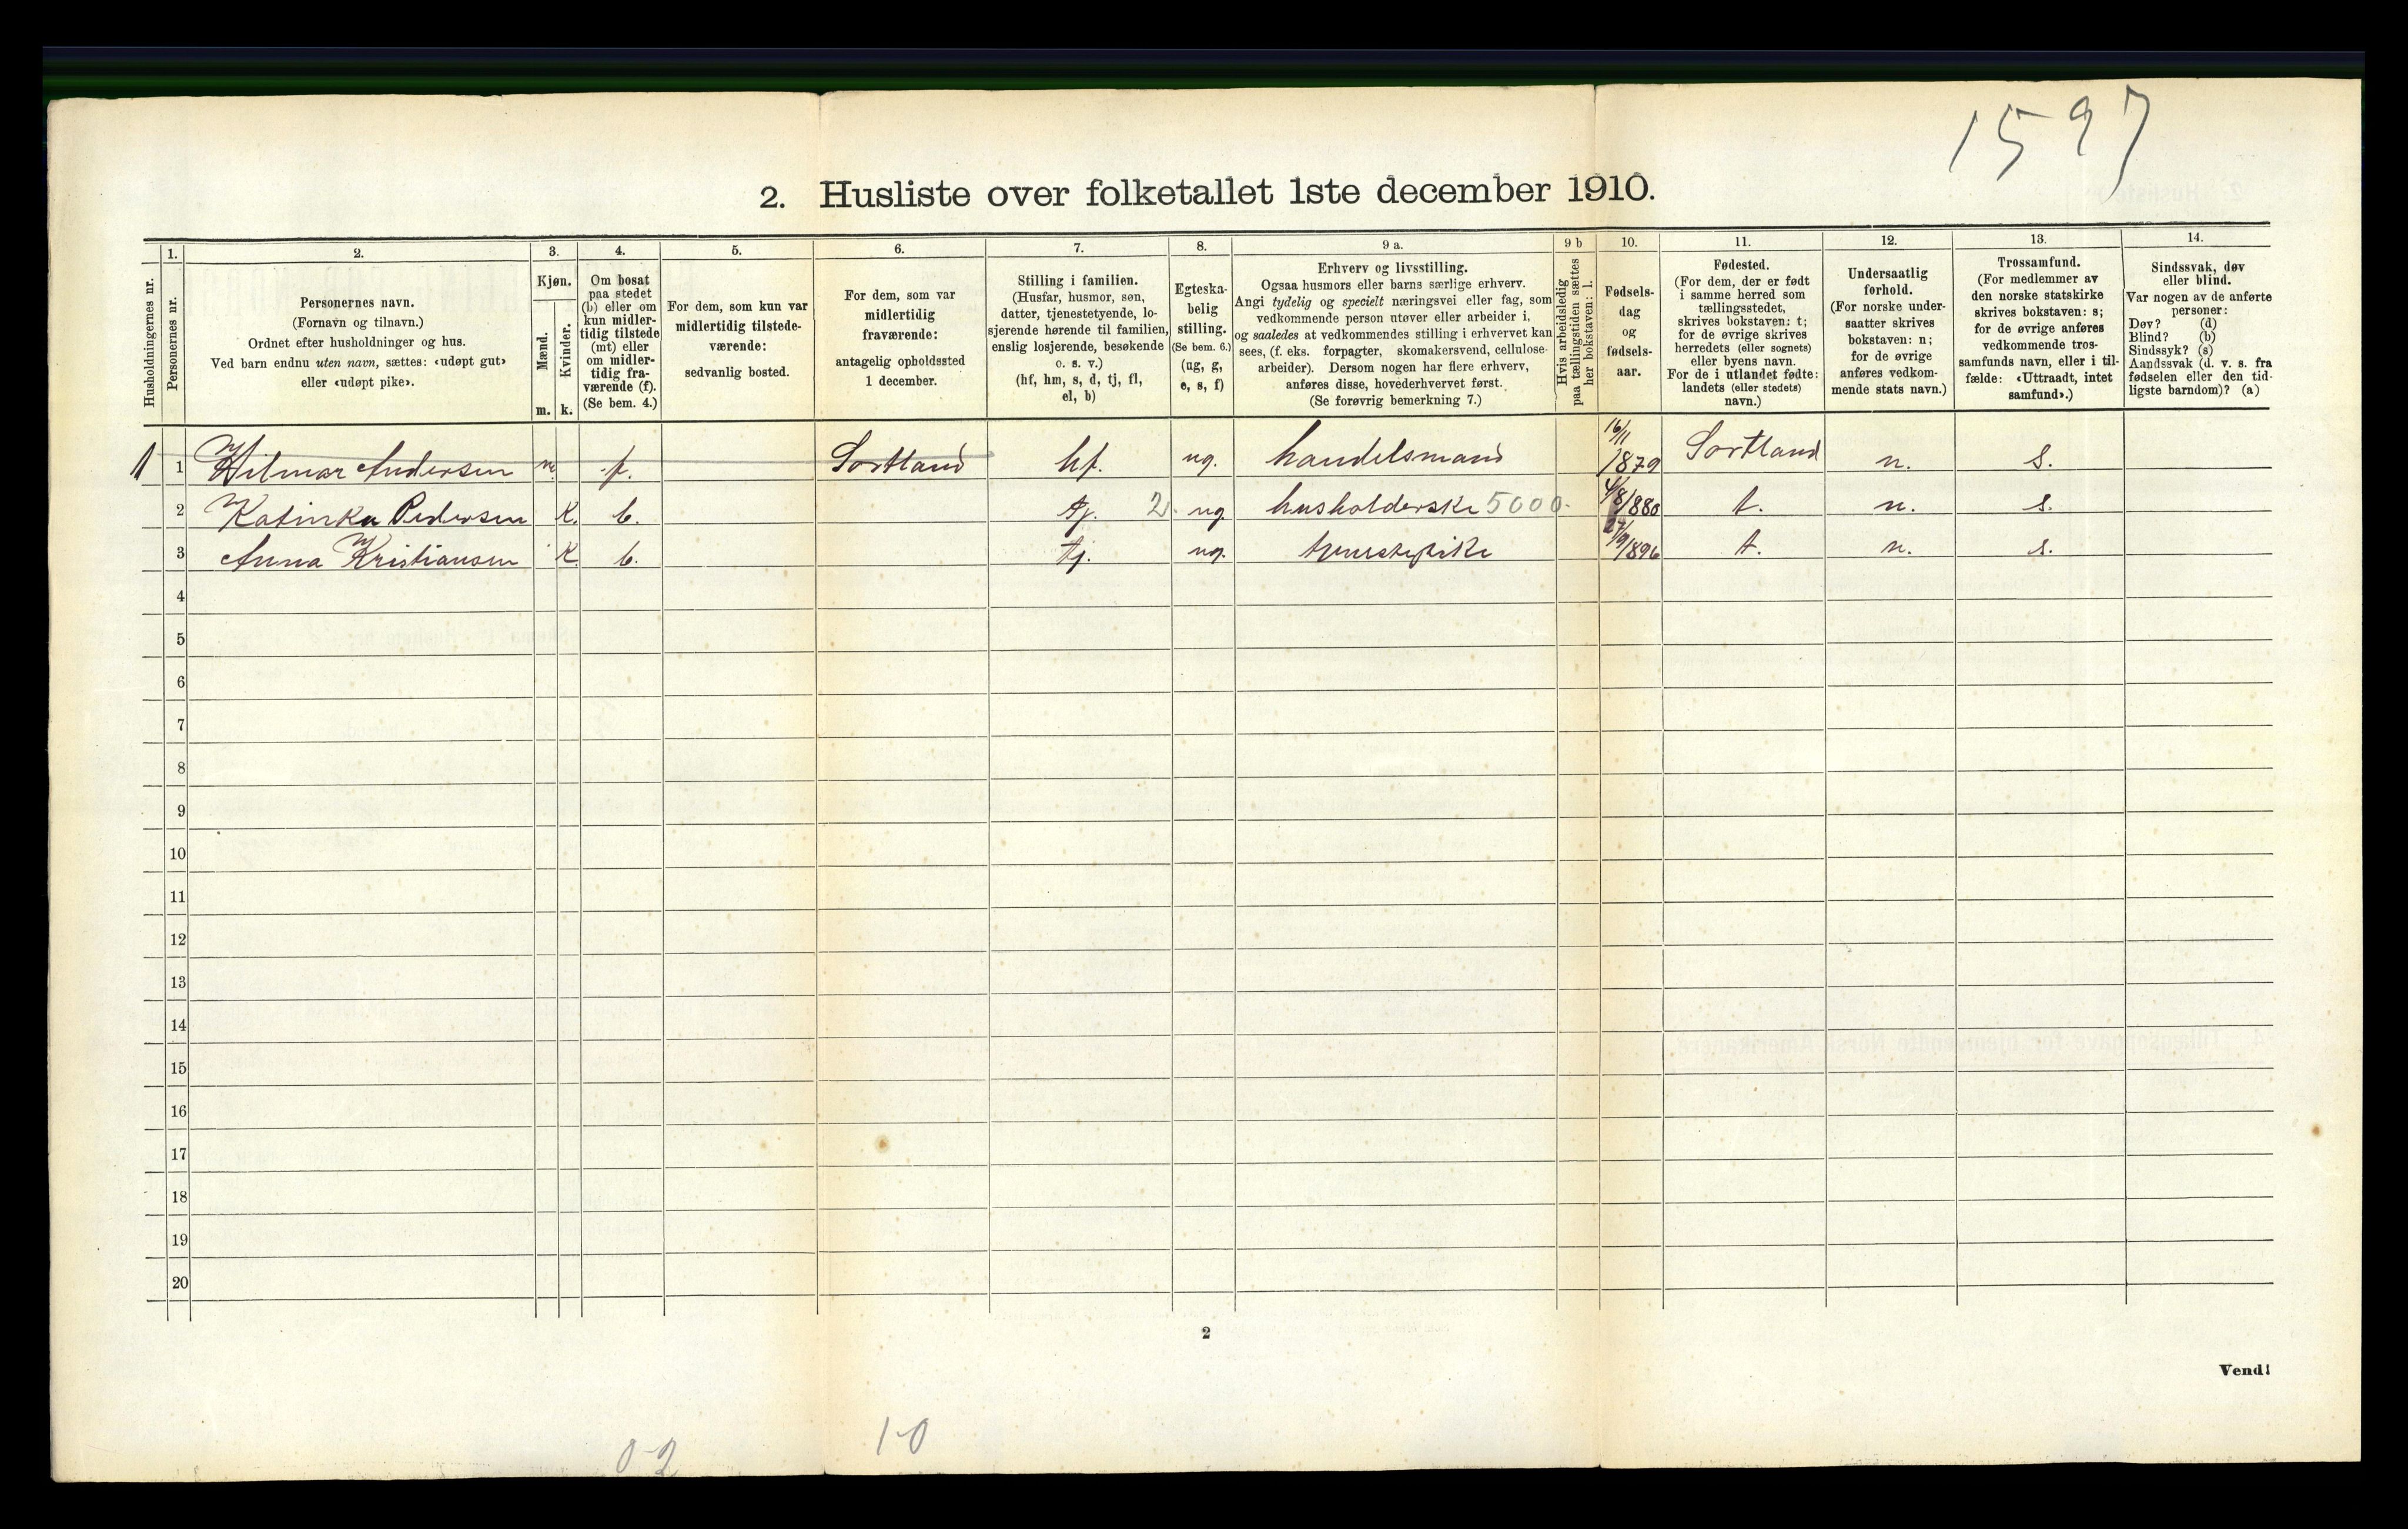 1597
2. Husliste over folketallet 1ste december 1910.
Husholdningernes nr.
1.
Personernes nr.
2.
Personernes navn.
(Fornavn og tilnavn.)
Ordnet efter husholdninger og hus.
Ved barn endnu uten navn, sættes: «udøpt gut»
eller «udøpt pike».
3.
Kjøn.
Mænd.
Kvinder.
m. k.
4.
Om bosat
paa stedet
(b) eller om
kun midler-
tidig tilstede
(mt) eller
om midler-
tidig fra-
værende (f).
(Se bem. 4.)
5.
For dem, som kun var
midlertidig tilstede-
værende:
sedvanlig bosted.
6.
For dem, som var
midlertidig
fraværende:
antagelig opholdssted
1 december.
7.
Stilling i familien.
(Husfar, husmor, søn,
datter, tjenestetyende, lo-
sjerende hørende til familien,
enslig losjerende, besøkende
o. s. v.)
(hf, hm, s, d, tj, fl,
el, b)
8.
Egteska-
belig
stilling.
(Se bem. 6.)
(ug, g,
e, s, f)
9 a.
Erhverv og livsstilling.
Ogsaa husmors eller barns særlige erhverv.
Angi tydelig og specielt næringsvei eller fag, som
vedkommende person utøver eller arbeider i,
og saaledes at vedkommendes stilling i erhvervet kan
sees, (f. eks. forpagter, skomakersvend, cellulose-
arbeider). Dersom nogen har flere erhverv,
anføres disse, hovederhvervet først.
(Se forøvrig bemerkning 7.)
9 b
Hvis arbeidsledig
paa tællingstiden sættes
her bokstaven: l.
10.
Fødsels-
dag
og
fødsels-
aar.
11.
Fødested.
(For dem, der er født
i samme herred som
tællingsstedet,
skrives bokstaven: t;
for de øvrige skrives
herredets (eller sognets)
eller byens navn.
For de i utlandet fødte:
landets (eller stedets)
navn.)
12.
Undersaatlig
forhold.
(For norske under-
saatter skrives
bokstaven: n;
for de øvrige
anføres vedkom-
mende stats navn.)
13.
Trossamfund.
(For medlemmer av
den norske statskirke
skrives bokstaven: s;
for de øvrige anføres
vedkommende tros-
samfunds navn, eller i til-
fælde: «Uttraadt, intet
samfund».)
14.
Sindssvak, døv
eller blind.
Var nogen av de anførte
personer:
Døv? (d)
Blind? (b)
Sindssyk? (s)
Aandssvak (d. v. s. fra
fødselen eller den tid-
ligste barndom)? (a)
1 1 Hilmar Andersen m. f. Sortland hf. ug. handelsmand 16/11 1879 Sortland n. s.
2 Katinka Pedersen k. b. tj. 2 ug. husholderske 5000 4/8 1880 t. n. s.
3 Anna Kristiansen k b. tj. ug. tjenestepike 1896 t. n. s.
4
5
6
7
8
9
10
11
12
13
14
15
16
17
18
19
20
2
Vend!
0-2 1-0